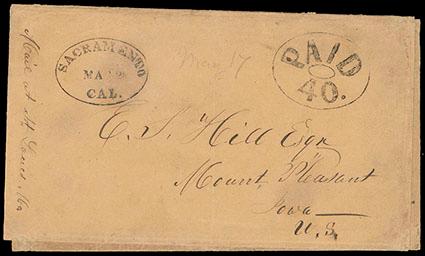 SACRAMENTO
CAL.
May 17
PAID
40.
E. S. Hill Esqr
Mount Pleasant
Iowa
U.S.
Mail at St Louis, Mo